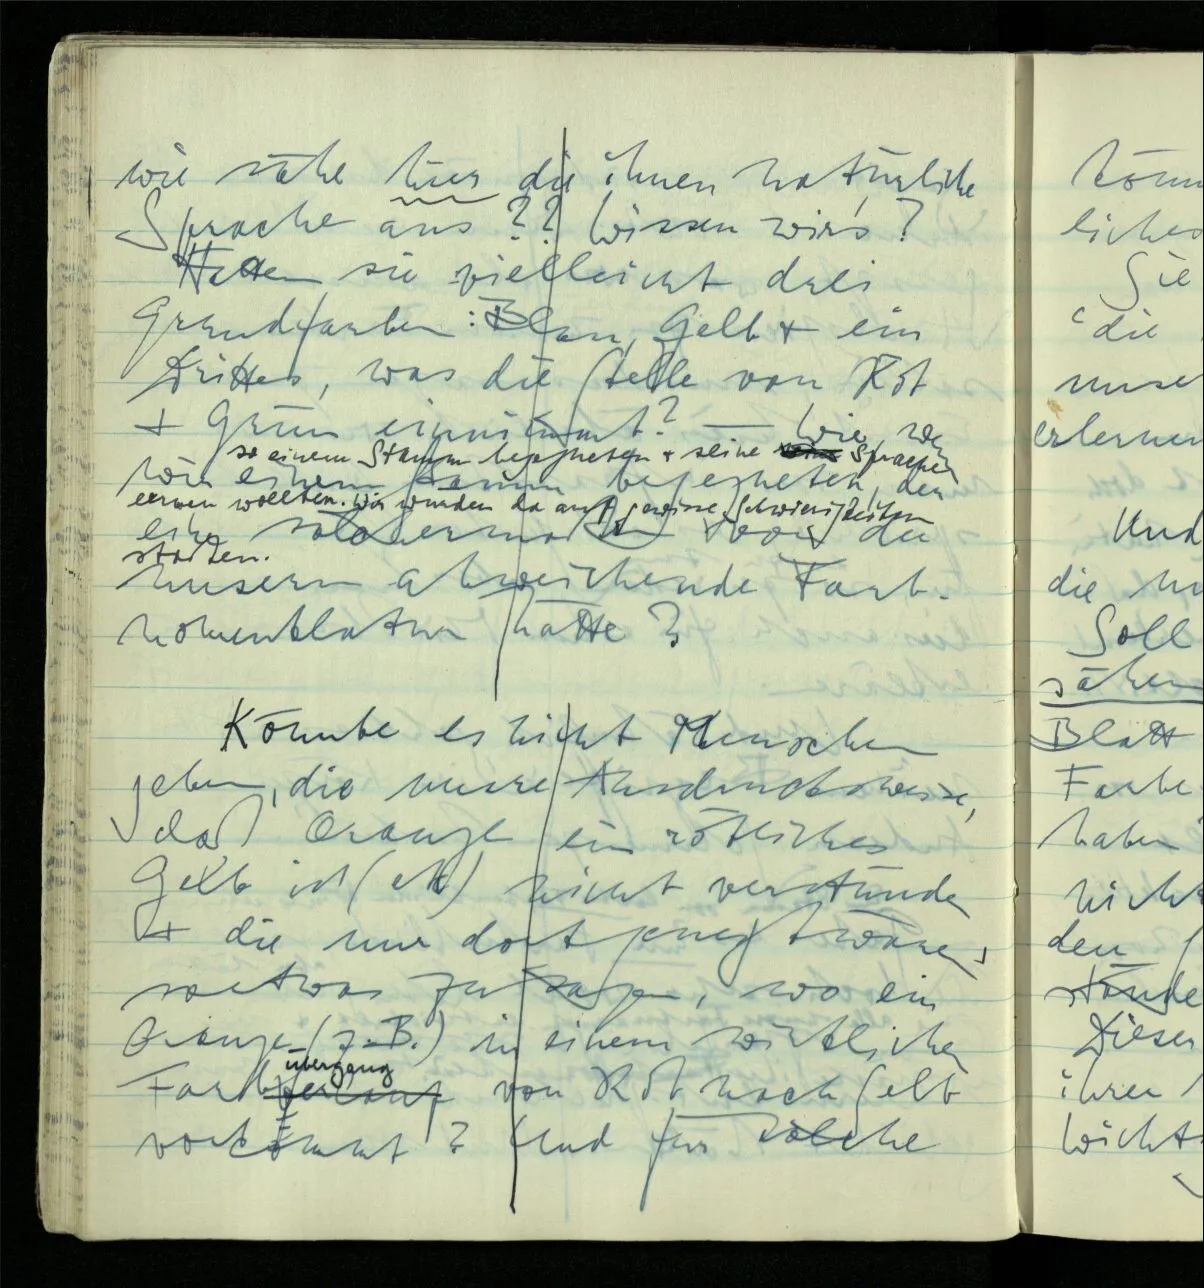 wie sähe hier die ihnen natürliche
Sprache aus?? Wissen wir's?
Hatten sie vielleicht drei
Grundfarben: Blau, Gelb + ein
Drittes, was die Stelle von Rot
+ Grün einnimmt? — Wie, we
so einem Stamm begegneten + seine Sprache
wir einem Stamm begegneten, der
lernen wollten. Wir würden da auf gewisse Schwierigkeiten
eine von der
stoßen.
unsern abweichende Farb-
nomenklatur hätte?
Könnte es nicht Menschen
geben, die unsre Ausdrucksweise,
daß Orange ein rötliches
Gelb ist (etc) nicht verstünden
+ die nur dort geneigt wären,
so etwas zu sagen, wo ein
Orange (z.B.) in einem wirklichen
übergang
Farbverlauf von Rot nach Gelb
vorkommt? Und für solche
könn
liches
Sie
'die
unser
erlernen
Und
die
Soll
sähen
Blatt
Farbe
haben
nicht
den
stände
Dieser
ihrer
Wicht